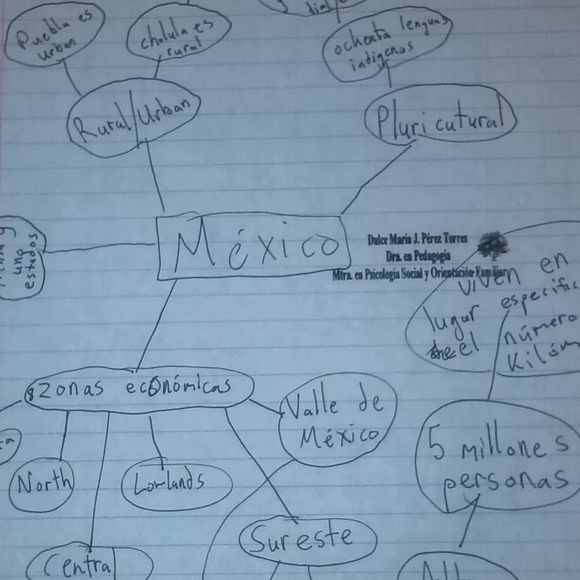 Puebla es
urban
cholula es
rural
ochenta lenguas
indigenas
Rural/Urban
Pluricutural
México
uno
estados
Dulce María J. Pérez Torres
Dra. en Pedagogía
Mtra. en Psicología Social y Orientación Familiar
viven en
lugar especific
el número
Kilóm
8 zonas económicas
Valle de
México
5 millones
personas
North
Lowlands
Sureste
Central